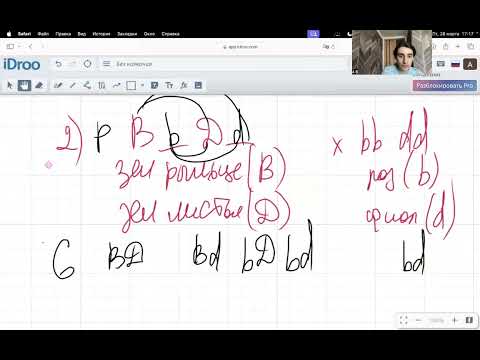 Safari Файл Правка История Закладки Окно Справка Пт, 28 марта 17:17
app.idroo.com
iDroo
Без названия
A
Разблокировать Pro
2) P B b D d x bb dd
зел рыльце (B) роз (b)
жел листья (D) фиол (d)
G BD Bd bD bd bd
100%